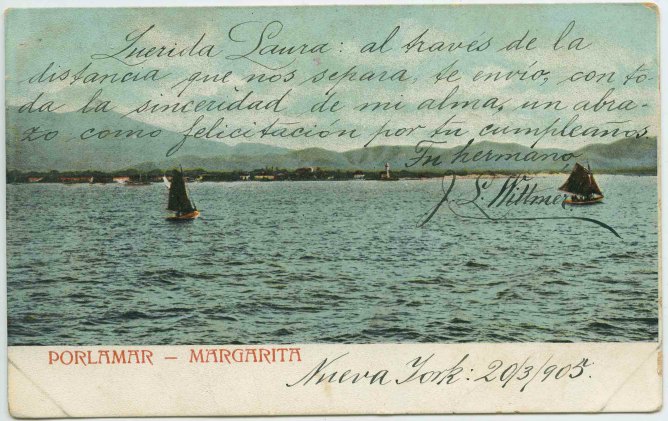 Querida Laura: al través de la
distancia que nos separa, te envío, con to-
da la sinceridad de mi alma, un abra-
zo como felicitación por tu cumpleaños.
Tu hermano
J. L. Wittmer.
PORLAMAR – MARGARITA
Nueva York: 20/3/905.